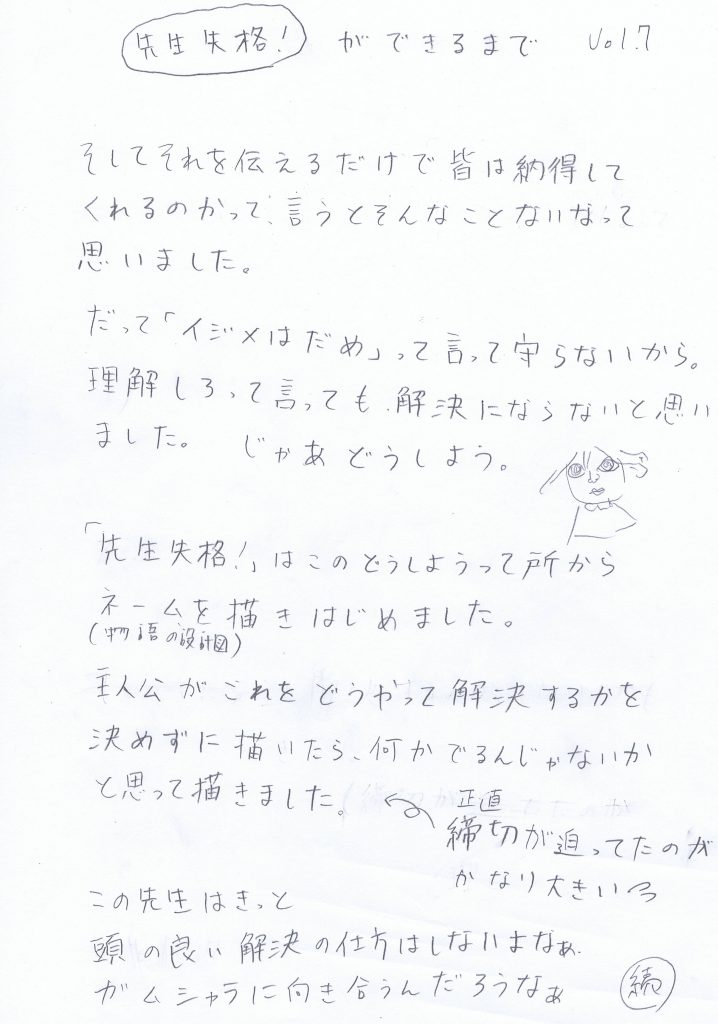 先生失格! ができるまで Vol.7
そしてそれを伝えるだけで皆は納得して
くれるのかって、言うとそんなことないなって
思いました。
だって「イジメはだめ」って言って守らないから。
理解しろって言っても解決にならないと思い
ました。 じゃあどうしよう。
「先生失格!」はこのどうしようって所から
ネームを描きはじめました。
(物語の設計図)
主人公がこれをどうやって解決するかを
決めずに描いたら、何かでるんじゃないか
と思って描きました。
正直
締切が迫ってたのが
かなり大きい
この先生はきっと
頭の良い解決の仕方はしないよなぁ.
ガムシャラに向き合うんだろうなぁ
続